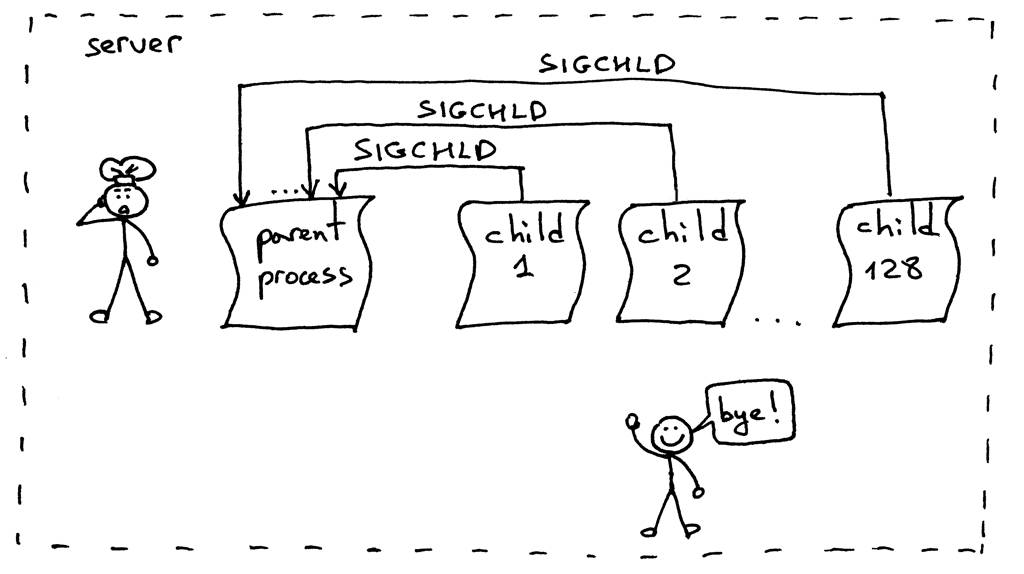 server
SIGCHLD
SIGCHLD
SIGCHLD
...
parent
process
child
1
child
2
...
child
128
bye!